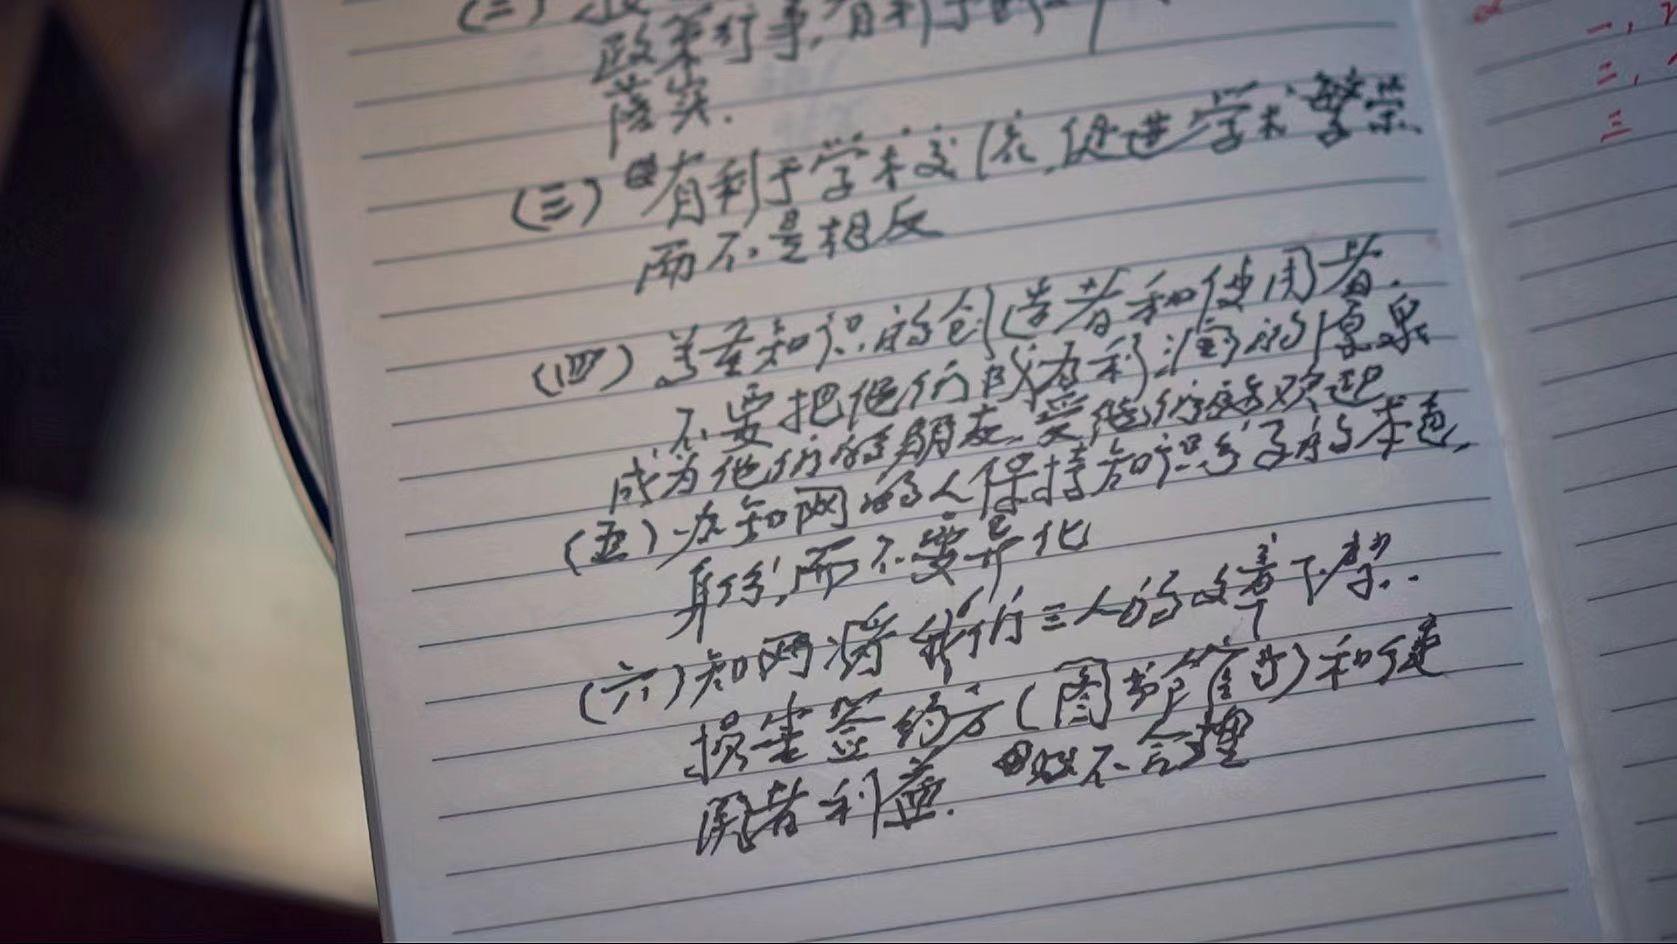 (二)
政策行事,有利于
落实.
(三)有利于学术交流,促进学术繁荣、
而不是相反
(四)尊重知识的创造者和使用者.
不要把他们成为利润的源泉
成为他们的朋友,受他们的欢迎
(五)办知网的人保持知识分子的本色,
身份,而不要异化
(六)知网将我们三人的文章下架..
损害签约方(图书馆等)和使
用者利益. 很不合理
一、
二、
三